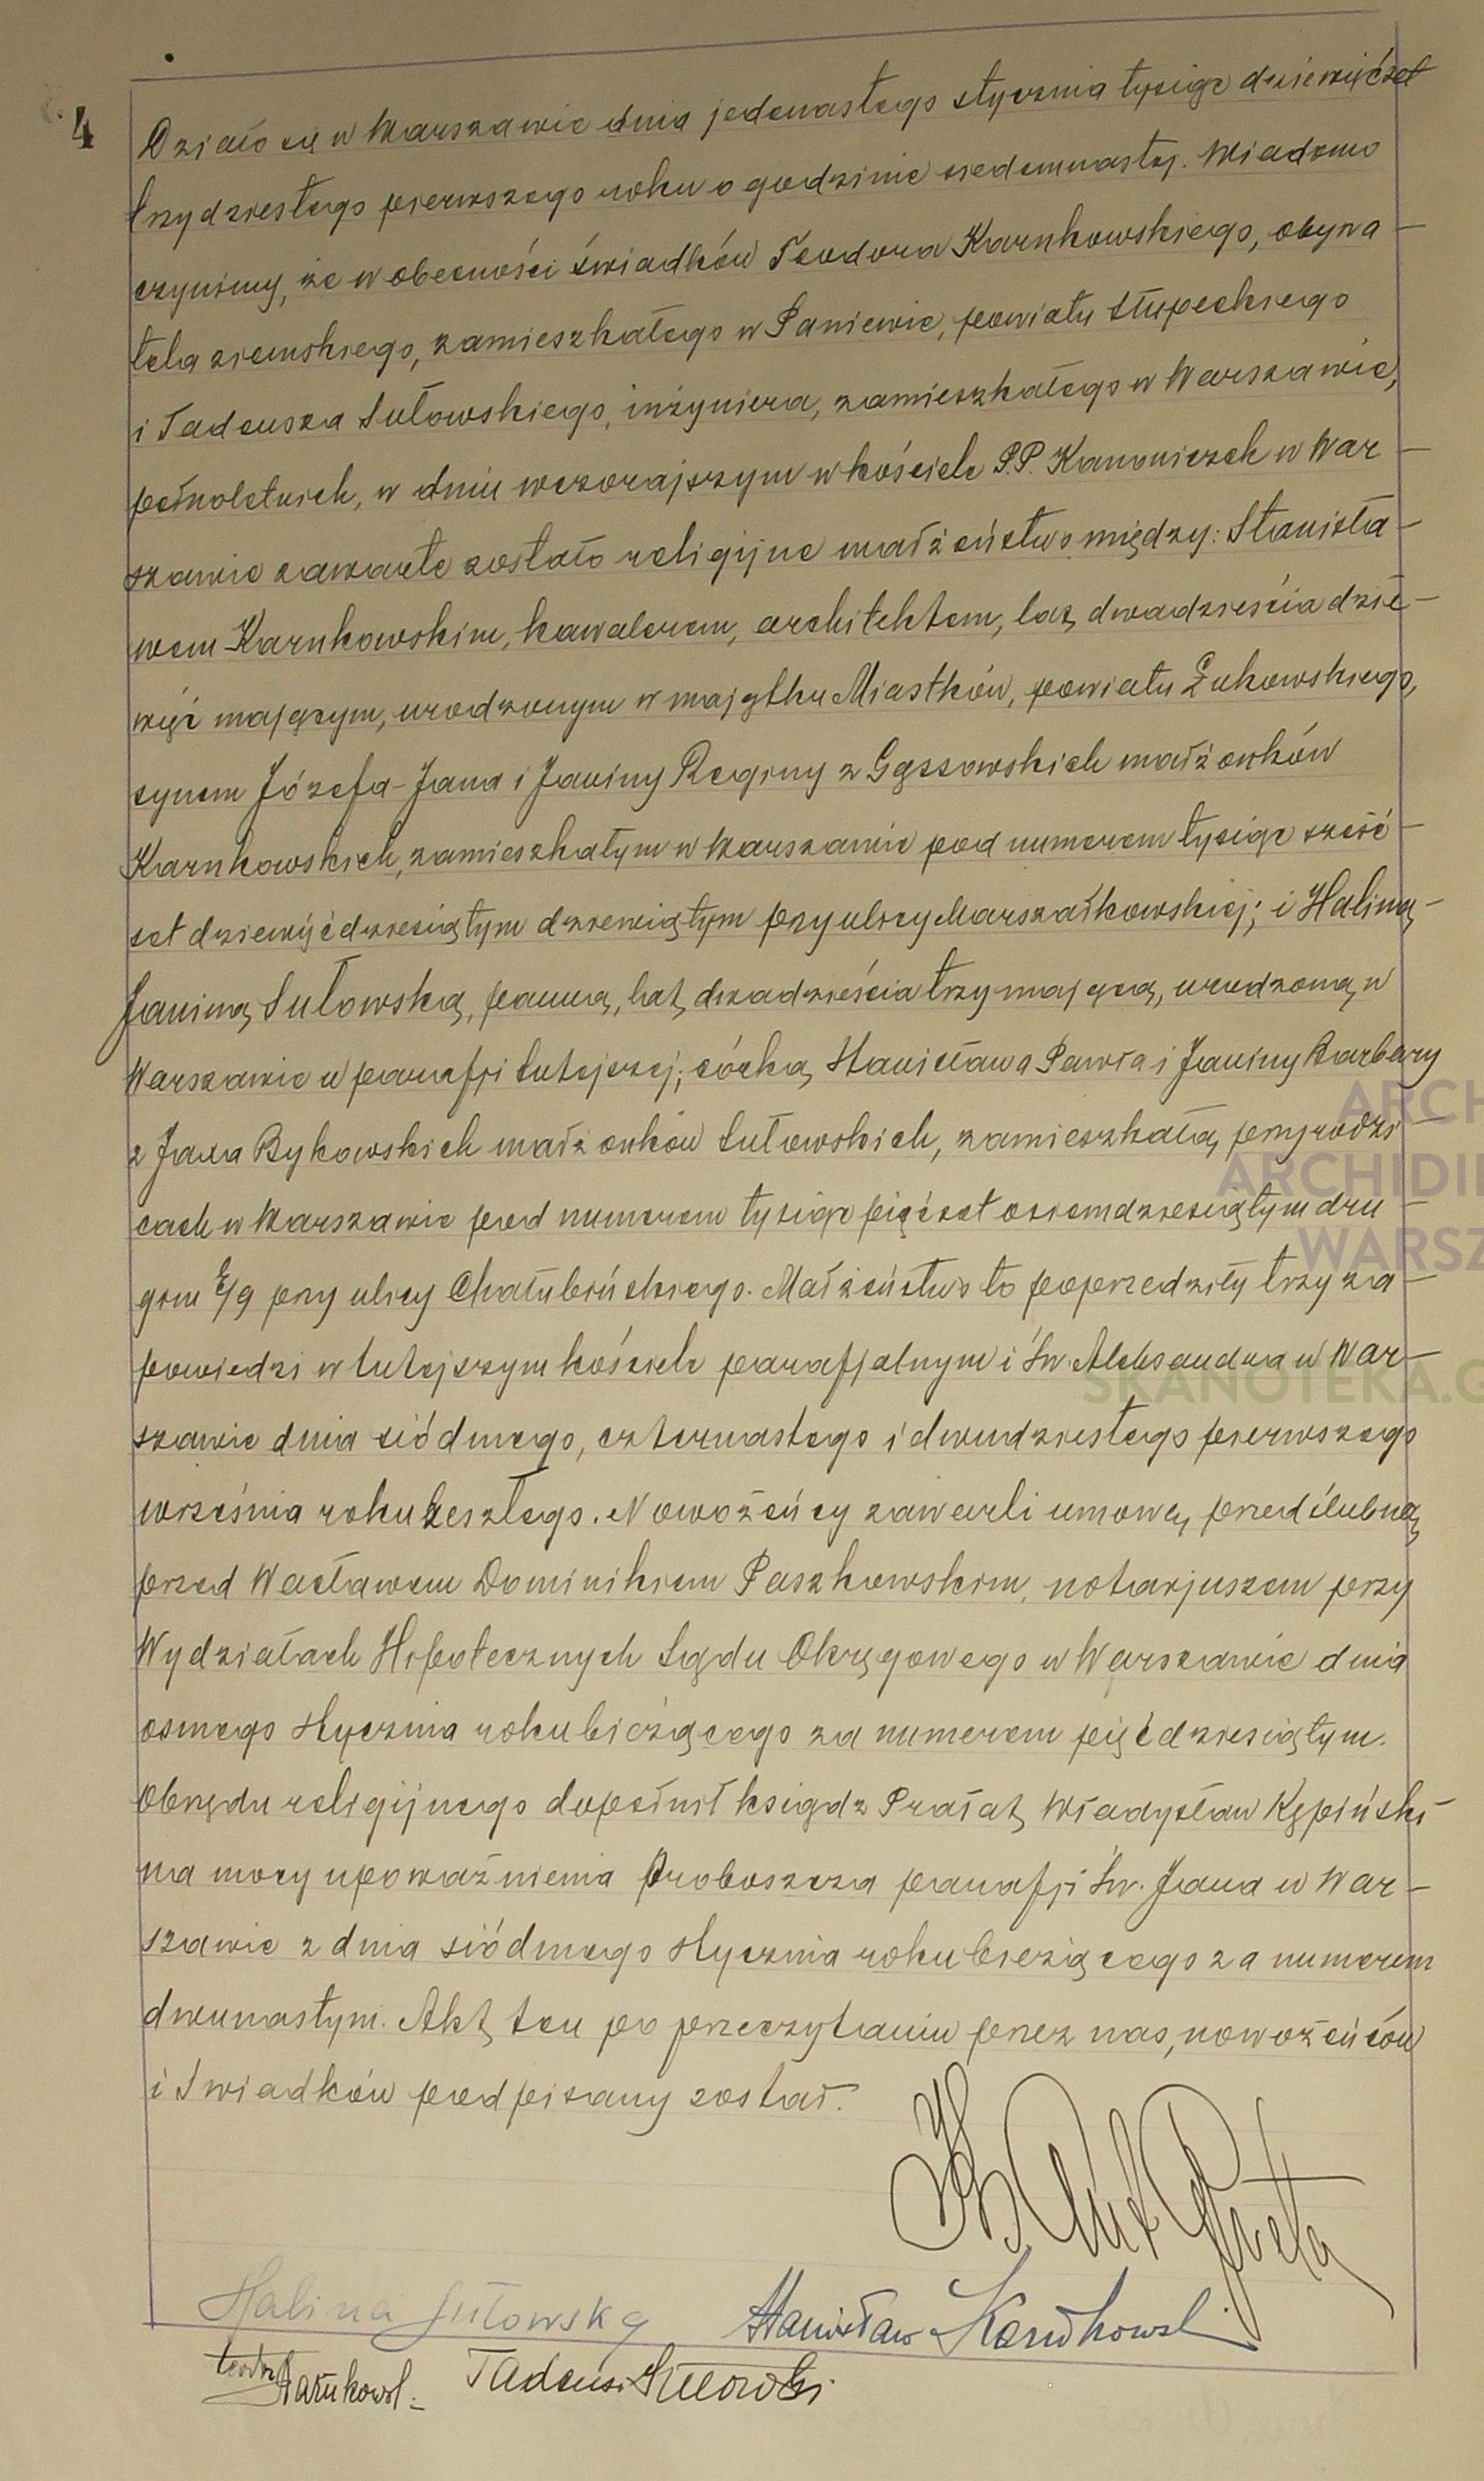 4
Działo się w Warszawie dnia jedenastego stycznia tysiąc dziewięćset
trzydziestego pierwszego roku o godzinie siedemnastej. Wiadomo
czynimy, że w obecności świadków Teodora Karnkowskiego, obywa-
tela ziemskiego, zamieszkałego w Paniewie, powiatu Słupeckiego
i Tadeusza Sułowskiego, inżyniera, zamieszkałego w Warszawie,
pełnoletnich, w dniu wczorajszym w kościele P.P. Kanoniczek w War-
szawie zawarte zostało religijne małżeństwo między: Stanisła-
wem Karnkowskim, kawalerem, architektem, lat dwadzieścia dzie-
więć mającym, urodzonym w majątku Miastków, powiatu Łukowskiego,
synem Józefa-Jana i Janiny Reginy z Gąssowskich małżonków
Karnkowskich, zamieszkałym w Warszawie pod numerem tysiąc sześć-
set dziewięćdziesiątym dziewiątym przy ulicy Marszałkowskiej; i Haliną-
Janiną Sułowską, panną, lat dwadzieścia trzy mającą, urodzoną w
Warszawie w parafji tutejszej; córką Stanisława Pawła i Janiny Barbary
z Jaxa Bykowskich małżonków Sułowskich, zamieszkałą przy rodzi-
cach w Warszawie pod numerem tysiąc pięćset osiemdziesiątym dru-
gim E/9 przy ulicy Chałubińskiego. Małżeństwo to poprzedziły trzy za-
powiedzi w tutejszym kościele parafjalnym i Św. Aleksandra w War-
szawie dnia siódmego, czternastego i dwudziestego pierwszego
września roku zeszłego. Nowożeńcy zawarli umowę przedślubną
przed Wacławem Dominikiem Paszkowskim, notarjuszem przy
Wydziałach Hipotecznych Sądu Okręgowego w Warszawie dnia
osmego stycznia roku bieżącego za numerem pięćdziesiątym.
Obrzędu religijnego dopełnił ksiądz Prałat Władysław Kępiński
na mocy upoważnienia Proboszcza parafji Św. Jana w War-
szawie z dnia siódmego stycznia roku bieżącego za numerem
dwunastym. Akt ten po przeczytaniu przez nas, nowożeńców
i świadków podpisany został.
Halina Sułowska Stanisław Karnkowski
Teodor Karnkowski Tadeusz Sułowski
ARCH
ARCHIDI
WARSZ
SKANOTEKA.G